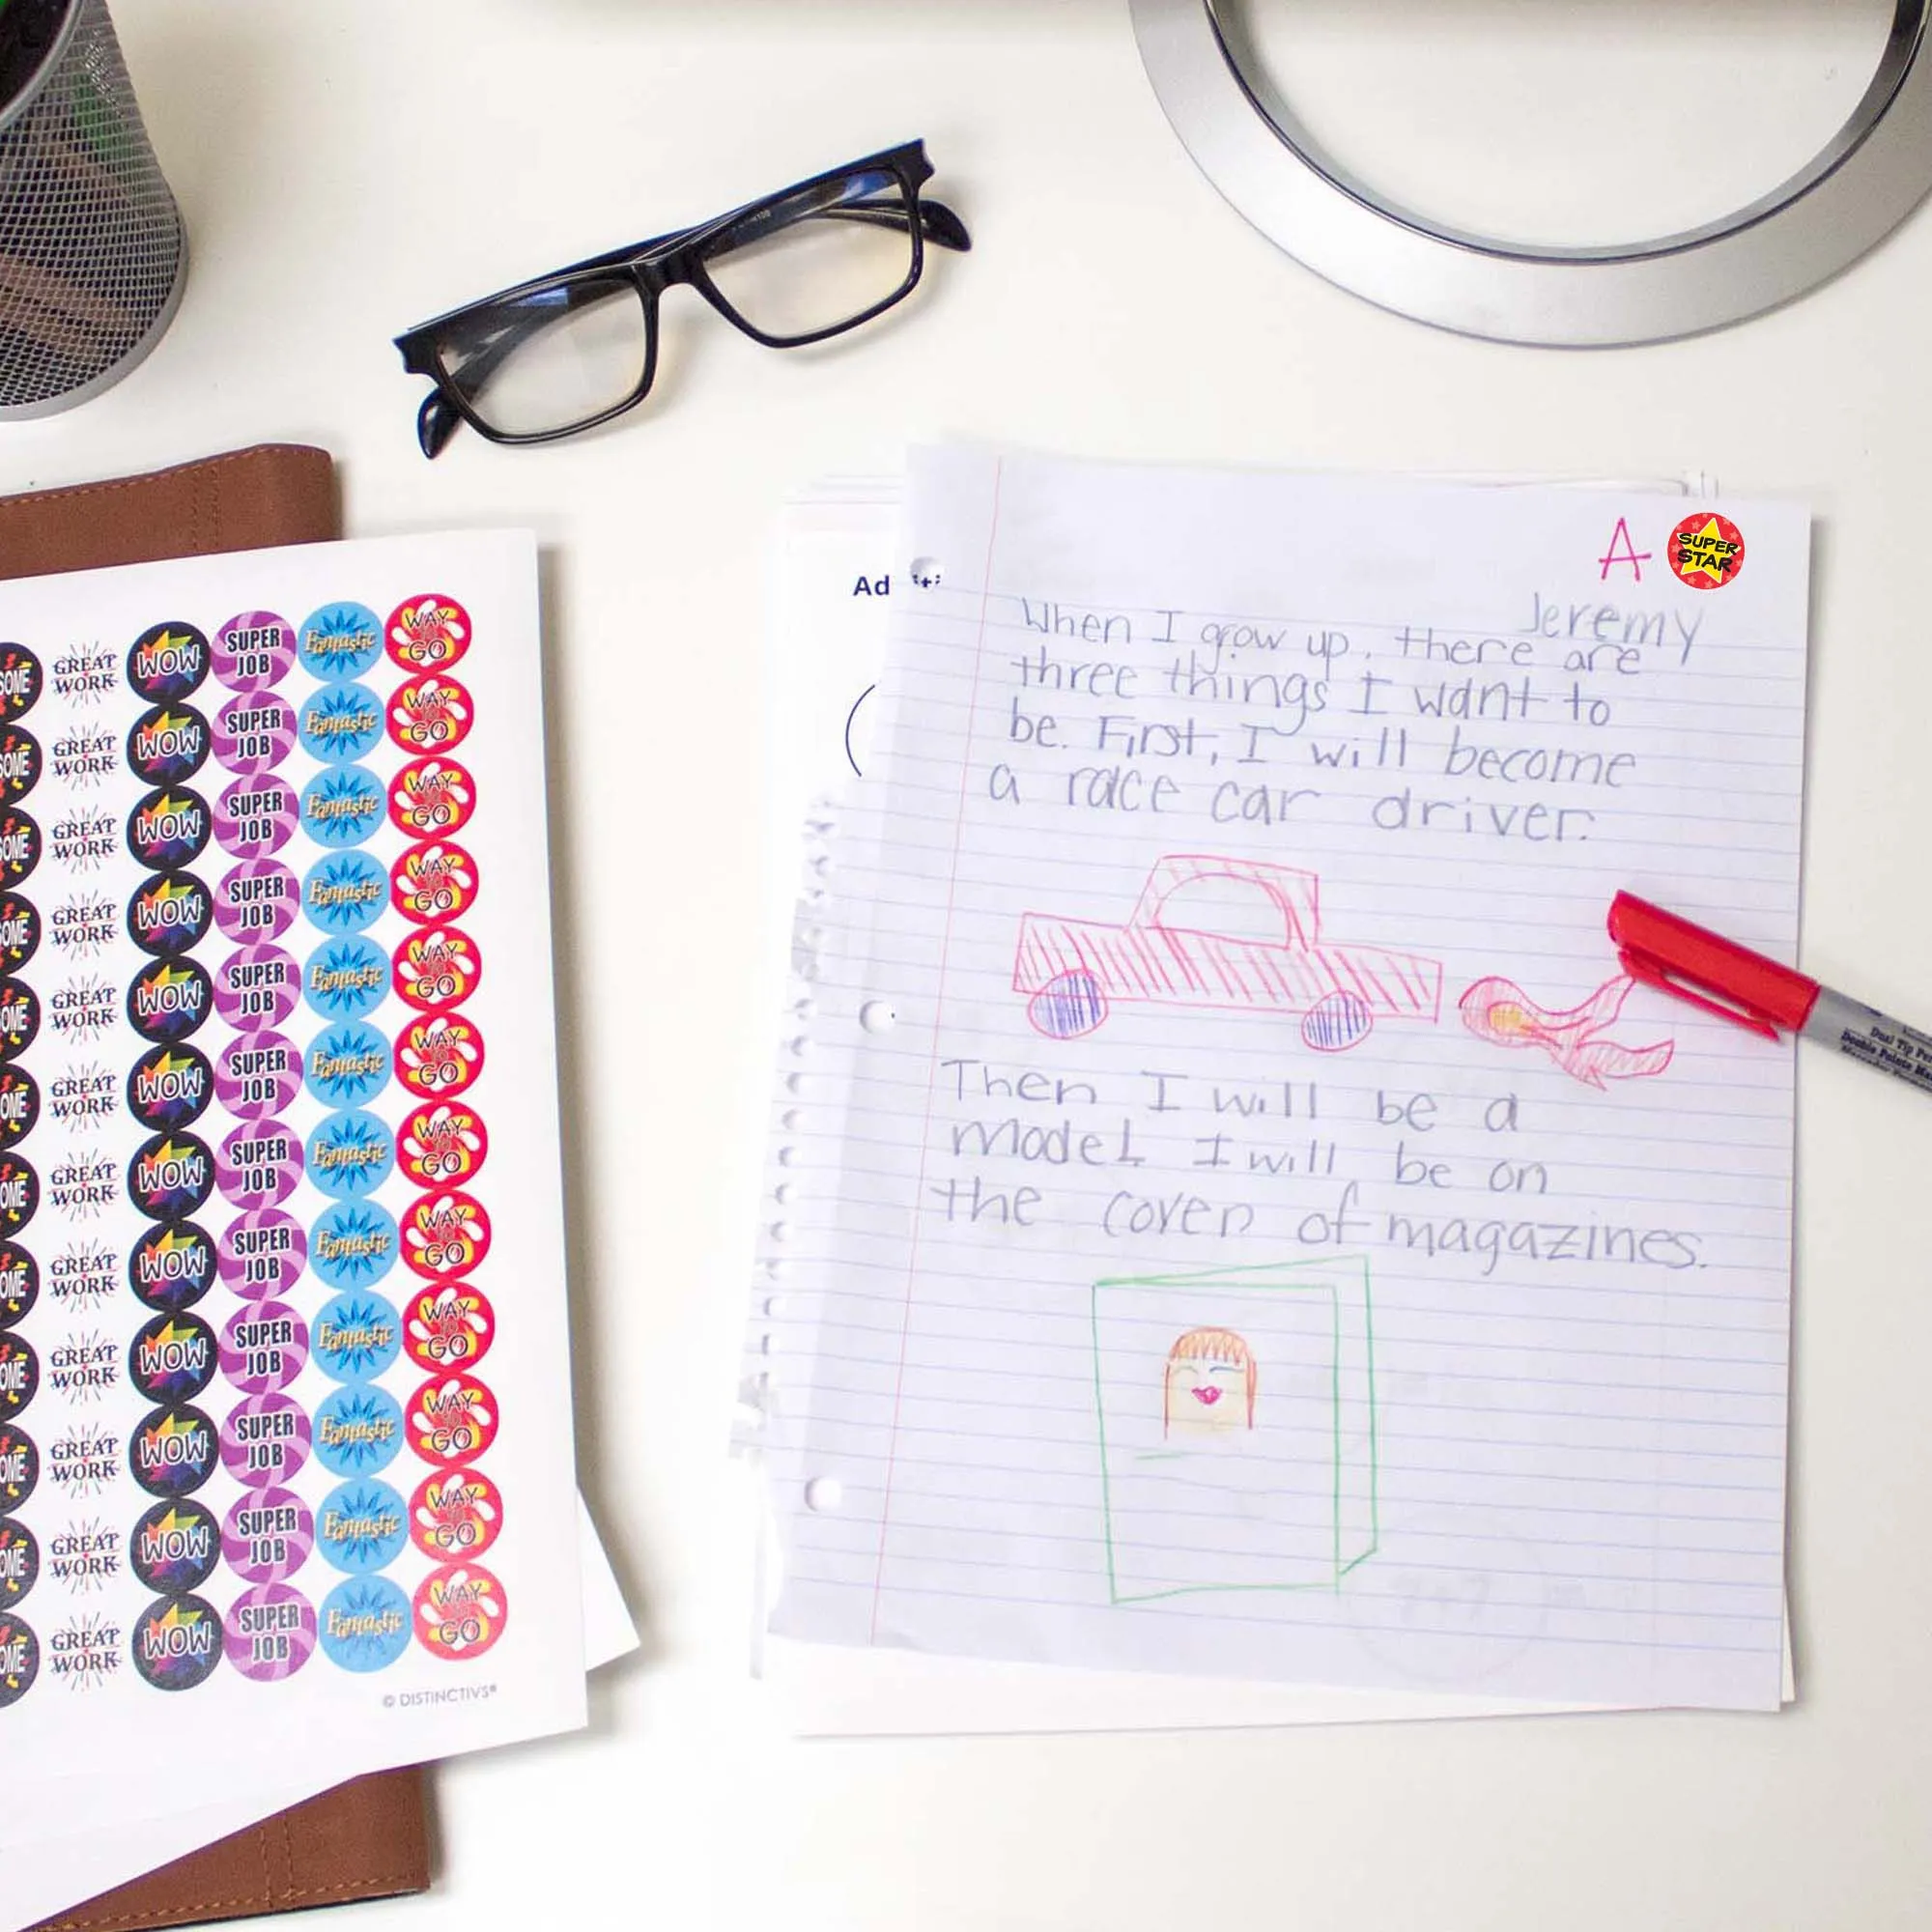 SOME GREAT WORK WOW SUPER JOB Fantastic WAY TO GO
SOME GREAT WORK WOW SUPER JOB Fantastic WAY TO GO
OME GREAT WORK WOW SUPER JOB Fantastic WAY TO GO
OME GREAT WORK WOW SUPER JOB Fantastic WAY TO GO
OME GREAT WORK WOW SUPER JOB Fantastic WAY TO GO
OME GREAT WORK WOW SUPER JOB Fantastic WAY TO GO
OME GREAT WORK WOW SUPER JOB Fantastic WAY TO GO
OME GREAT WORK WOW SUPER JOB Fantastic WAY TO GO
OME GREAT WORK WOW SUPER JOB Fantastic WAY TO GO
OME GREAT WORK WOW SUPER JOB Fantastic WAY TO GO
OME GREAT WORK WOW SUPER JOB Fantastic WAY TO GO
OME GREAT WORK WOW SUPER JOB Fantastic WAY TO GO
© DISTINCTIVS®
Ad
A
SUPER
STAR
Jeremy
When I grow up, there are
three things I want to
be. First, I will become
a race car driver.
Then I will be a
model. I will be on
the cover of magazines.
Dual Tip
Double Pointe